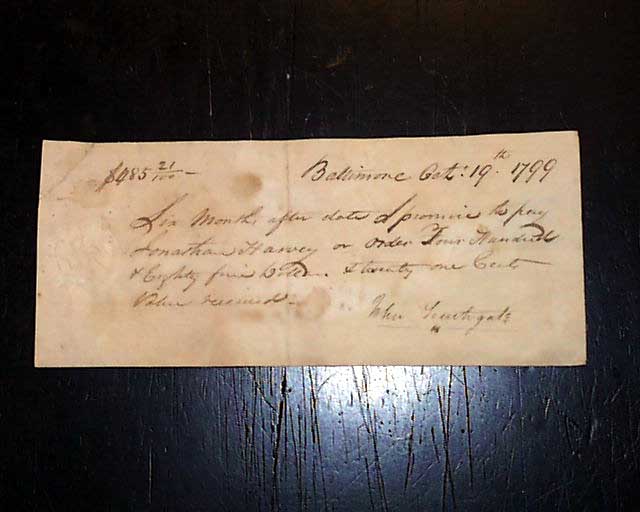 $485 21/100 — Baltimore Octr. 19th. 1799
Six Months after date I promise to pay
Jonathan Harvey or order Four Hundred
& Eighty five Dollars & twenty one Cents
Value received —
John Southgate